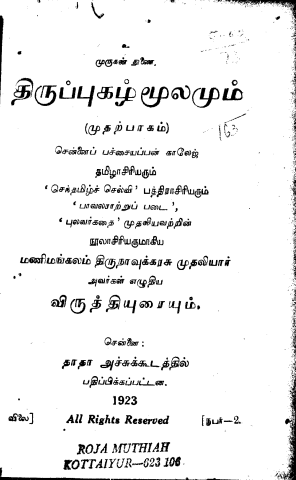 உ
முருகன் துணை.
திருப்புகழ்மூலமும்
(முதற்பாகம்)
163
சென்னைப் பச்சையப்பன் காலேஜ்
தமிழாசிரியரும்
'செந்தமிழ்ச் செல்வி' பத்திராசிரியரும்
'பாவலராற்றுப் படை',
'புலவர்கதை' முதலியவற்றின்
நூலாசிரியருமாகிய
மணிமங்கலம் திருநாவுக்கரசு முதலியார்
அவர்கள் எழுதிய
விருத்தியுரையும்.
சென்னை:
தாதா அச்சுக்கூடத்தில்
பதிப்பிக்கப்பட்டன.
1923
விலை] All Rights Reserved [நபர்—2.
ROJA MUTHIAH
KOTTAIYUR—623 106